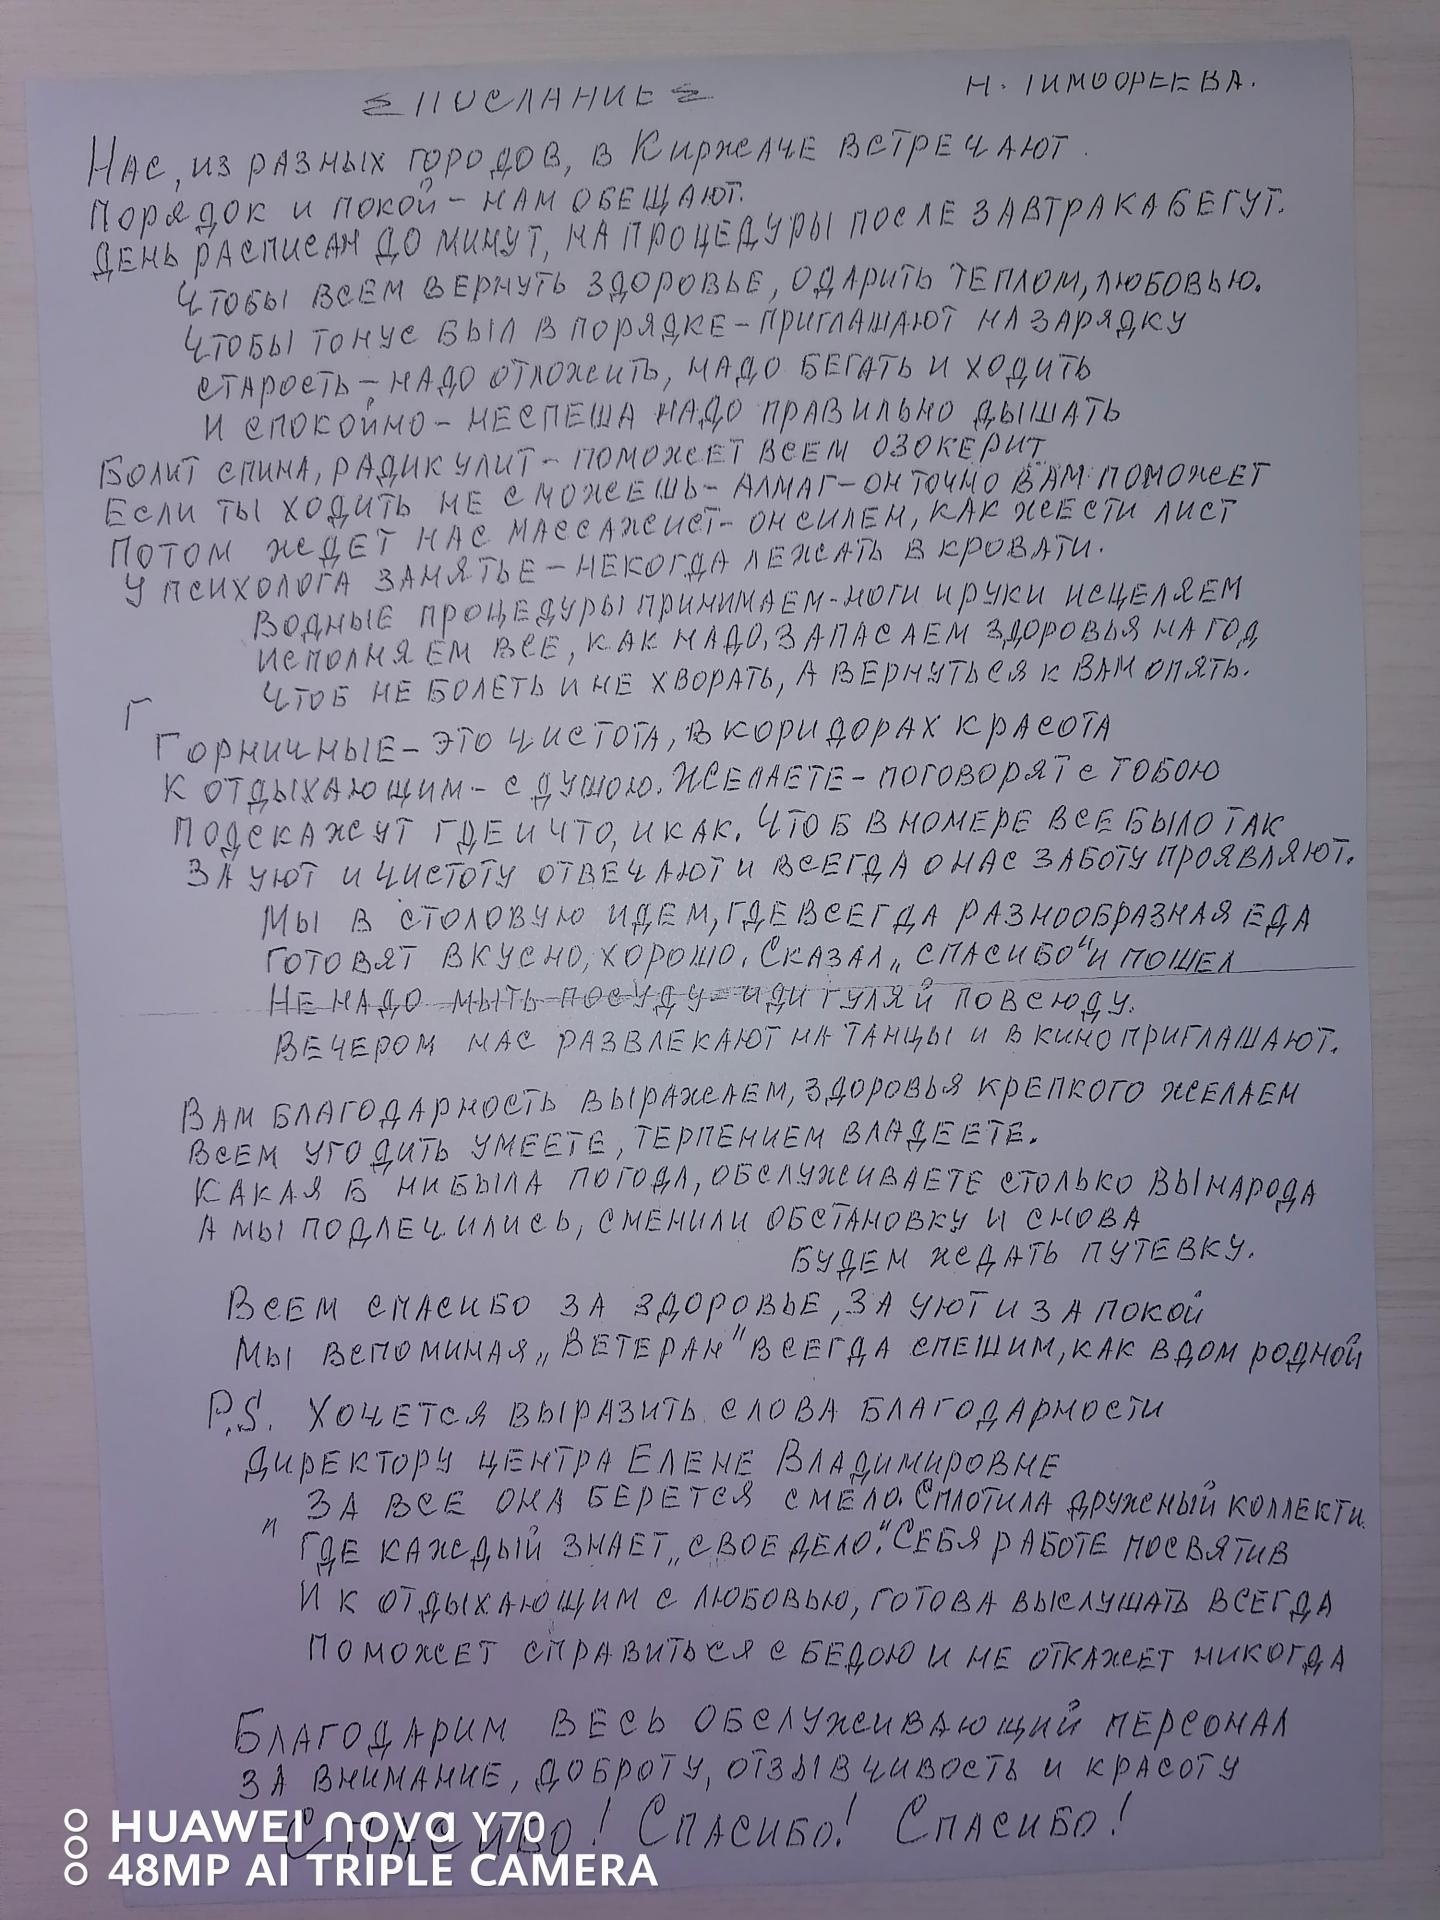 ПОСЛАНИЕ Н. ТИМОФЕЕВА.
Нас, из разных городов, в Киржаче встречают.
Порядок и покой - нам обещают.
День расписан до минут, на процедуры после завтрака бегут.
Чтобы всем вернуть здоровье, одарить теплом, любовью.
Чтобы тонус был в порядке - приглашают на зарядку
старость - надо отложить, надо бегать и ходить
и спокойно - неспеша надо правильно дышать
Болит спина, радикулит - поможет всем озокерит
Если ты ходить не сможешь - Алмаг - он точно вам поможет
Потом ждет нас массажист - он силен, как жести лист
У психолога занятье - некогда лежать в кровати.
Водные процедуры принимаем - ноги и руки исцеляем
исполняем все, как надо, запасаем здоровья на год
Чтоб не болеть и не хворать, а вернуться к вам опять.
Г
Горничные - это чистота, в коридорах красота
К отдыхающим - с душою. Желаете - поговорят с тобою
Подскажут где и что, и как. Чтоб в номере все было так
За уют и чистоту отвечают и всегда о нас заботу проявляют.
Мы в столовую идем, где всегда разнообразная еда
Готовят вкусно, хорошо. Сказал „спасибо" и пошел
Не надо мыть посуду - иди гуляй повсюду.
Вечером нас развлекают на танцы и в кино приглашают.
Вам благодарность выражаем, здоровья крепкого желаем
Всем угодить умеете, терпением владеете.
Какая б ни была погода, обслуживаете столько вы народа
А мы подлечились, сменили обстановку и снова
будем ждать путевку.
Всем спасибо за здоровье, за уют и за покой
Мы вспоминая „Ветеран" всегда спешим, как в дом родной
P.S. Хочется выразить слова благодарности
Директору центра Елене Владимировне
За все она берется смело. Сплотила дружный коллекти
и Где каждый знает „свое дело". Себя работе посвятив
И к отдыхающим с любовью, готова выслушать всегда
Поможет справиться с бедою и не откажет никогда
Благодарим весь обслуживающий персонал
За внимание, доброту, отзывчивость и красоту
Спасибо! Спасибо! Спасибо!
HUAWEI nova Y70
48MP AI TRIPLE CAMERA